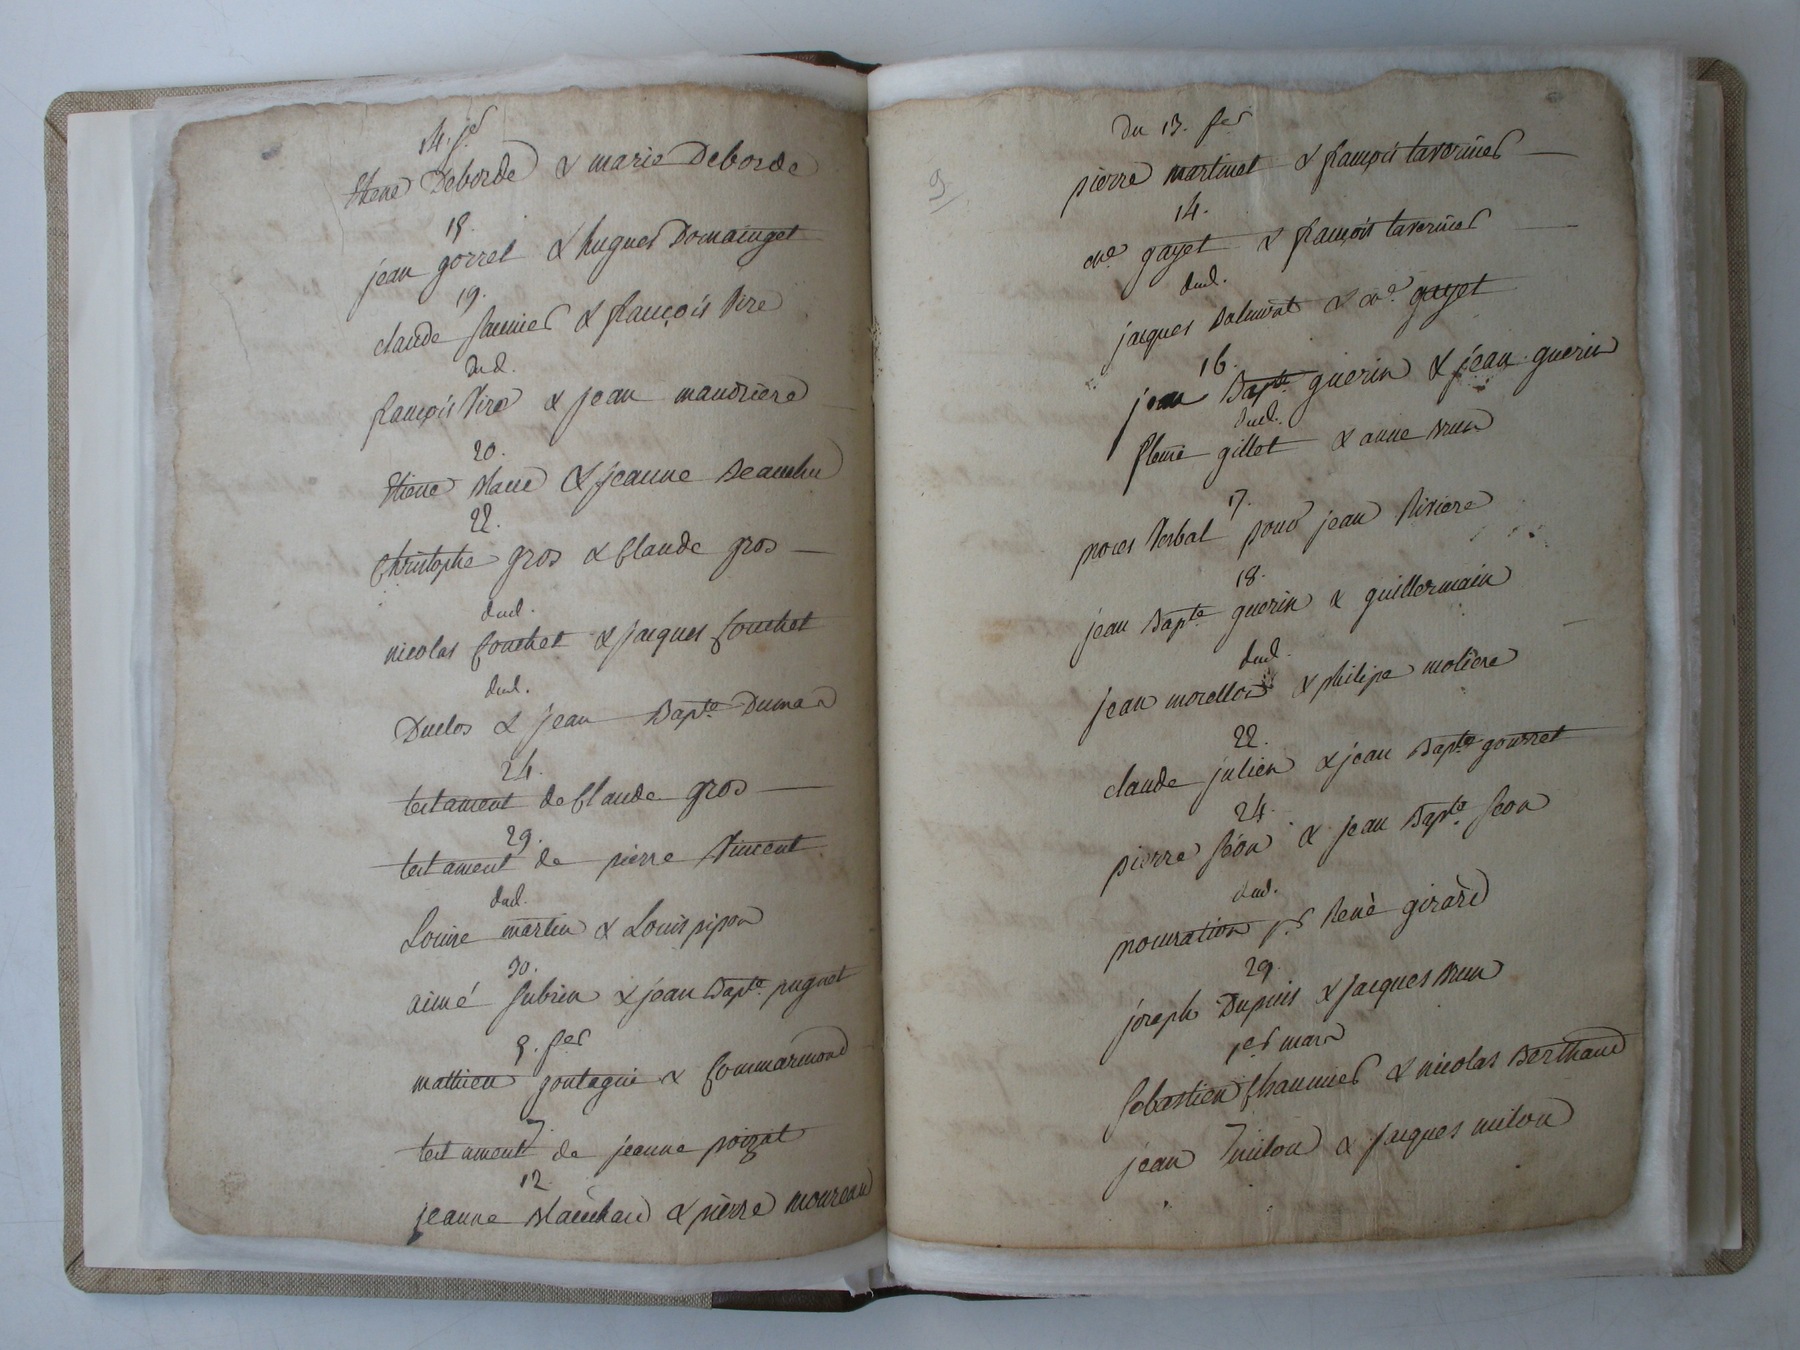 14. jer
Etiene Deborde & marie Deborde
18.
jean gorret & hugues Domainget
19.
claude & françois Viré
dud.
françois Viré & jean maudriere
20.
Etiene & jeanne
22.
Christophe gros & Claude gros
dud.
nicolas Couchet & jacques Couchet
dud.
Duclos & jean Bapte Dumas
24.
testament de Claude gros
29.
testament de pierre Vincent
dud.
Louise martin & Louis pipon
30.
aimé Subrin & jean Bapte puguet
5. fer
mathieu goutagni & Commarmond
7.
testament de jeanne poizat
12
jeanne Blanchard & pierre moureau
Du 13. fer
pierre martinet & françois tavernier
14.
gayet & françois tavernier
dud.
jacques & gayet
16.
jean Bapte guerin & jean guerin
dud.
gillet & anne Brun
17.
proces Verbal pour jean Riviere
18.
jean Bapte guerin & guillermain
dud.
jean morellon & philipe moliere
22.
claude julien & jean Bapte gourret
24.
pierre Séon & jean Bapte Séon
dud.
procuration pr René girard
29.
joseph Dupuis & jacques Brun
1er mars
Sebastien Chaumier & nicolas Berthaud
7
jean miton & jacques miton
9